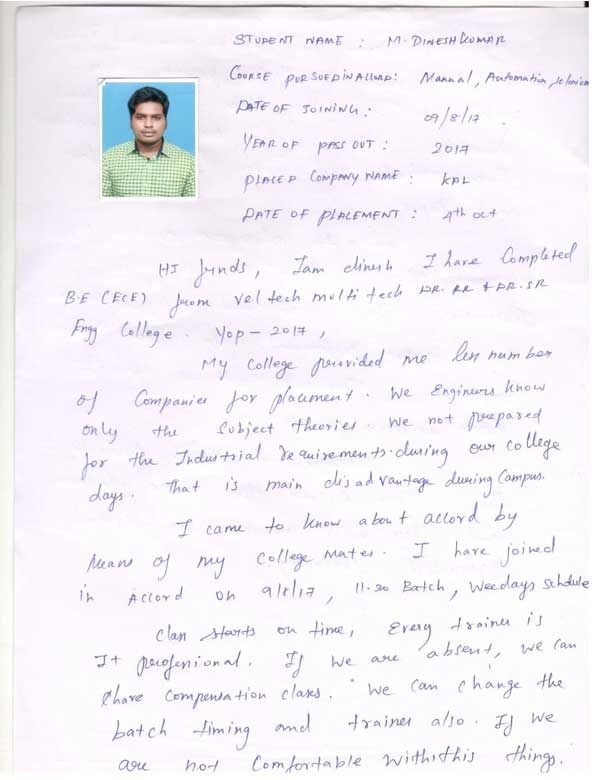 STUDENT NAME : M. DINESHKUMAR
COURSE PURSUED IN ACCORD: Manual, Automation, Selenium
DATE OF JOINING : 09/8/17
YEAR OF PASS OUT : 2017
PLACED COMPANY NAME : KPL
DATE OF PLACEMENT : 4th oct
HI friends, Iam dinesh I have Completed
B.E (ECE) from Vel tech multi tech DR. RR & DR. SR
Engg College. YOP - 2017,
My College provided me less number
of Companies for placement. We Engineers know
only the Subject theories. We not prepared
for the Industrial requirements. during our college
days. That is main disadvantage during Campus.
I came to know about accord by
Means of my college mates. I have joined
in Accord on 9/8/17, 11.30 Batch, Weedays Schdule
Class starts on time, Every trainer is
It professional. If we are absent, we can
have Compensation class. We can change the
batch timing and trainer also. If we
are not Comfortable with this things.